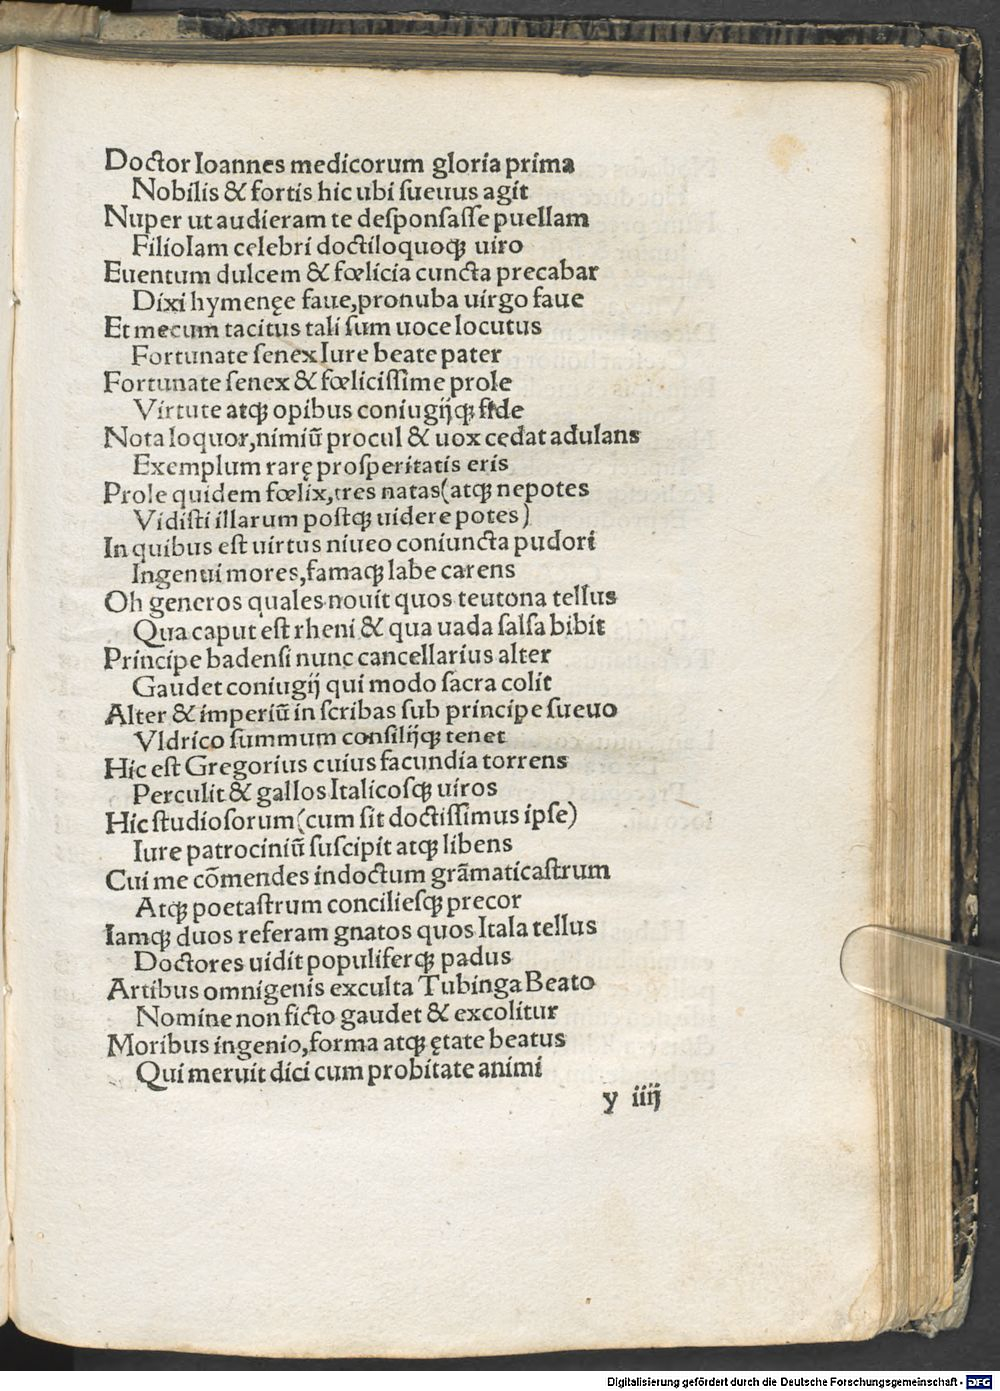 Doctor Ioannes medicorum gloria prima
Nobilis & fortis hic ubi sueuus agit
Nuper ut audieram te desponsasse puellam
Filiolam celebri doctiloquoqꝫ uiro
Euentum dulcem & fœlicia cuncta precabar
Dixi hymenęe faue,pronuba uirgo faue
Et mecum tacitus tali sum uoce locutus
Fortunate senex Iure beate pater
Fortunate senex & fœlicissime prole
Virtute atqꝫ opibus coniugijqꝫ fide
Nota loquor,nimiũ procul & uox cedat adulans
Exemplum rarę prosperitatis eris
Prole quidem fœlix,tres natas(atqꝫ nepotes
Vidisti illarum postqꝫ uidere potes)
In quibus est uirtus niueo coniuncta pudori
Ingenui mores,famaqꝫ labe carens
Oh generos quales nouit quos teutona tellus
Qua caput est rheni & qua uada salsa bibit
Principe badensi nunc cancellarius alter
Gaudet coniugij qui modo sacra colit
Alter & imperiũ in scribas sub principe sueuo
Vldrico summum consilijqꝫ tenet
Hic est Gregorius cuius facundia torrens
Perculit & gallos Italicosqꝫ uiros
Hic studiosorum(cum sit doctissimus ipse)
Iure patrociniũ suscipit atqꝫ libens
Cui me cõmendes indoctum grãmaticastrum
Atqꝫ poetastrum conciliesqꝫ precor
Iamqꝫ duos referam gnatos quos Itala tellus
Doctores uidit populiferqꝫ padus
Artibus omnigenis exculta Tubinga Beato
Nomine non ficto gaudet & excolitur
Moribus ingenio,forma atqꝫ ętate beatus
Qui meruit dici cum probitate animi
y iiij
Digitalisierung gefördert durch die Deutsche Forschungsgemeinschaft - DFG